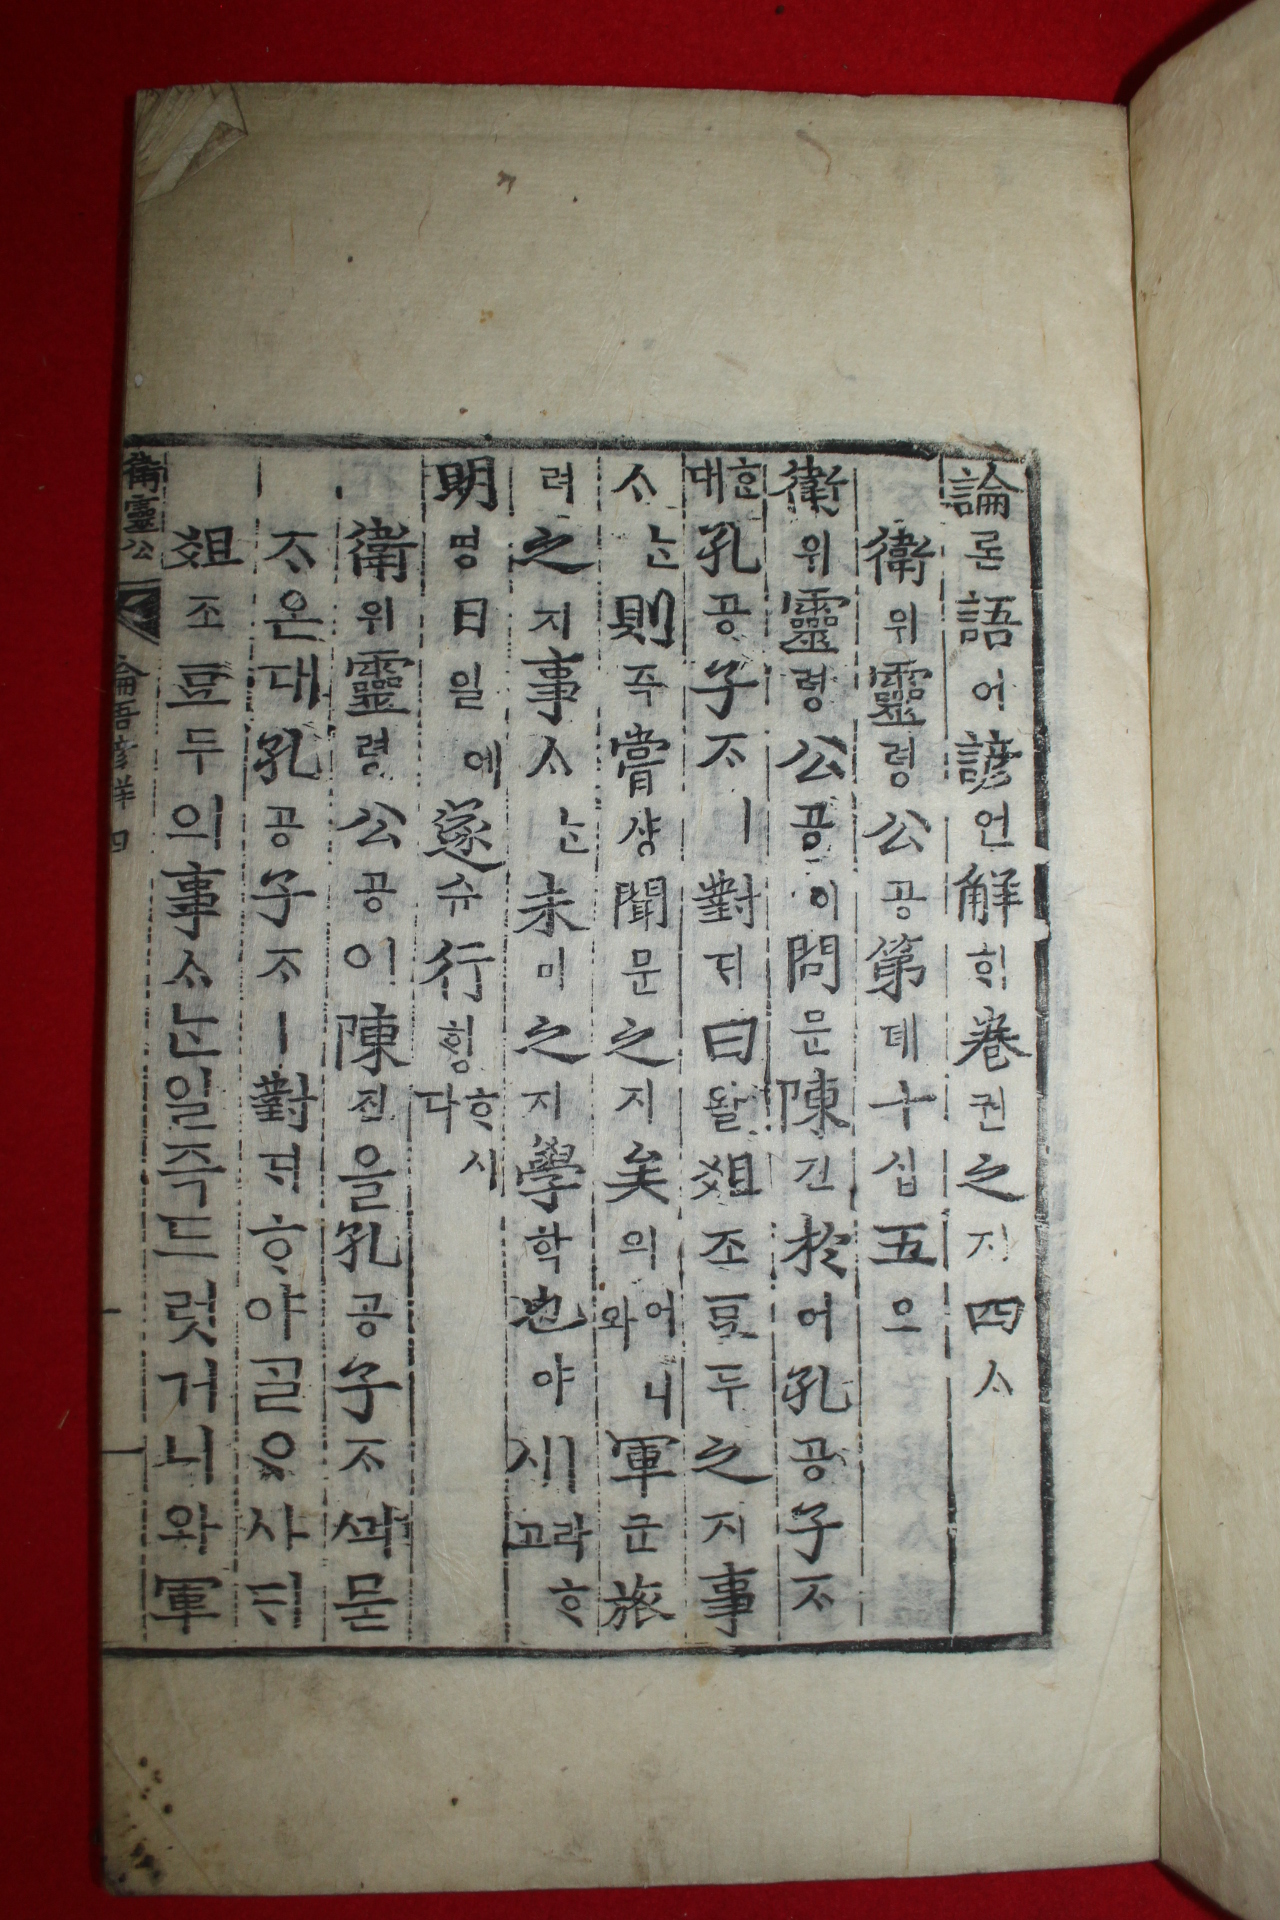 論론語어諺언解ᄒᆡ卷권之지四ᄉᆞ
衛위靈령公공第뎨十십五오
衛위靈령公공이問문陳진於어孔공子ᄌᆞ
ᄒᆞᆫ대孔공子ᄌᆞㅣ對ᄃᆡ曰왈俎조豆두之지事
ᄉᆞᄂᆞᆫ則즉嘗샹聞문之지矣의어니와軍군旅
려之지事ᄉᆞᄂᆞᆫ未미之지學학也야ㅣ라ᄒᆞ시고
明명日일에遂슈行ᄒᆡᆼᄒᆞ시다
衛위靈령公공이陳진을孔공子ᄌᆞᄭᅴ묻
ᄌᆞ온대孔공子ᄌᆞㅣ對ᄃᆡᄒᆞ야ᄀᆞᆯᄋᆞ샤ᄃᆡ
俎조豆두의事ᄉᆞᄂᆞᆫ일즉드럿거니와軍
衛靈公 論語諺解 四